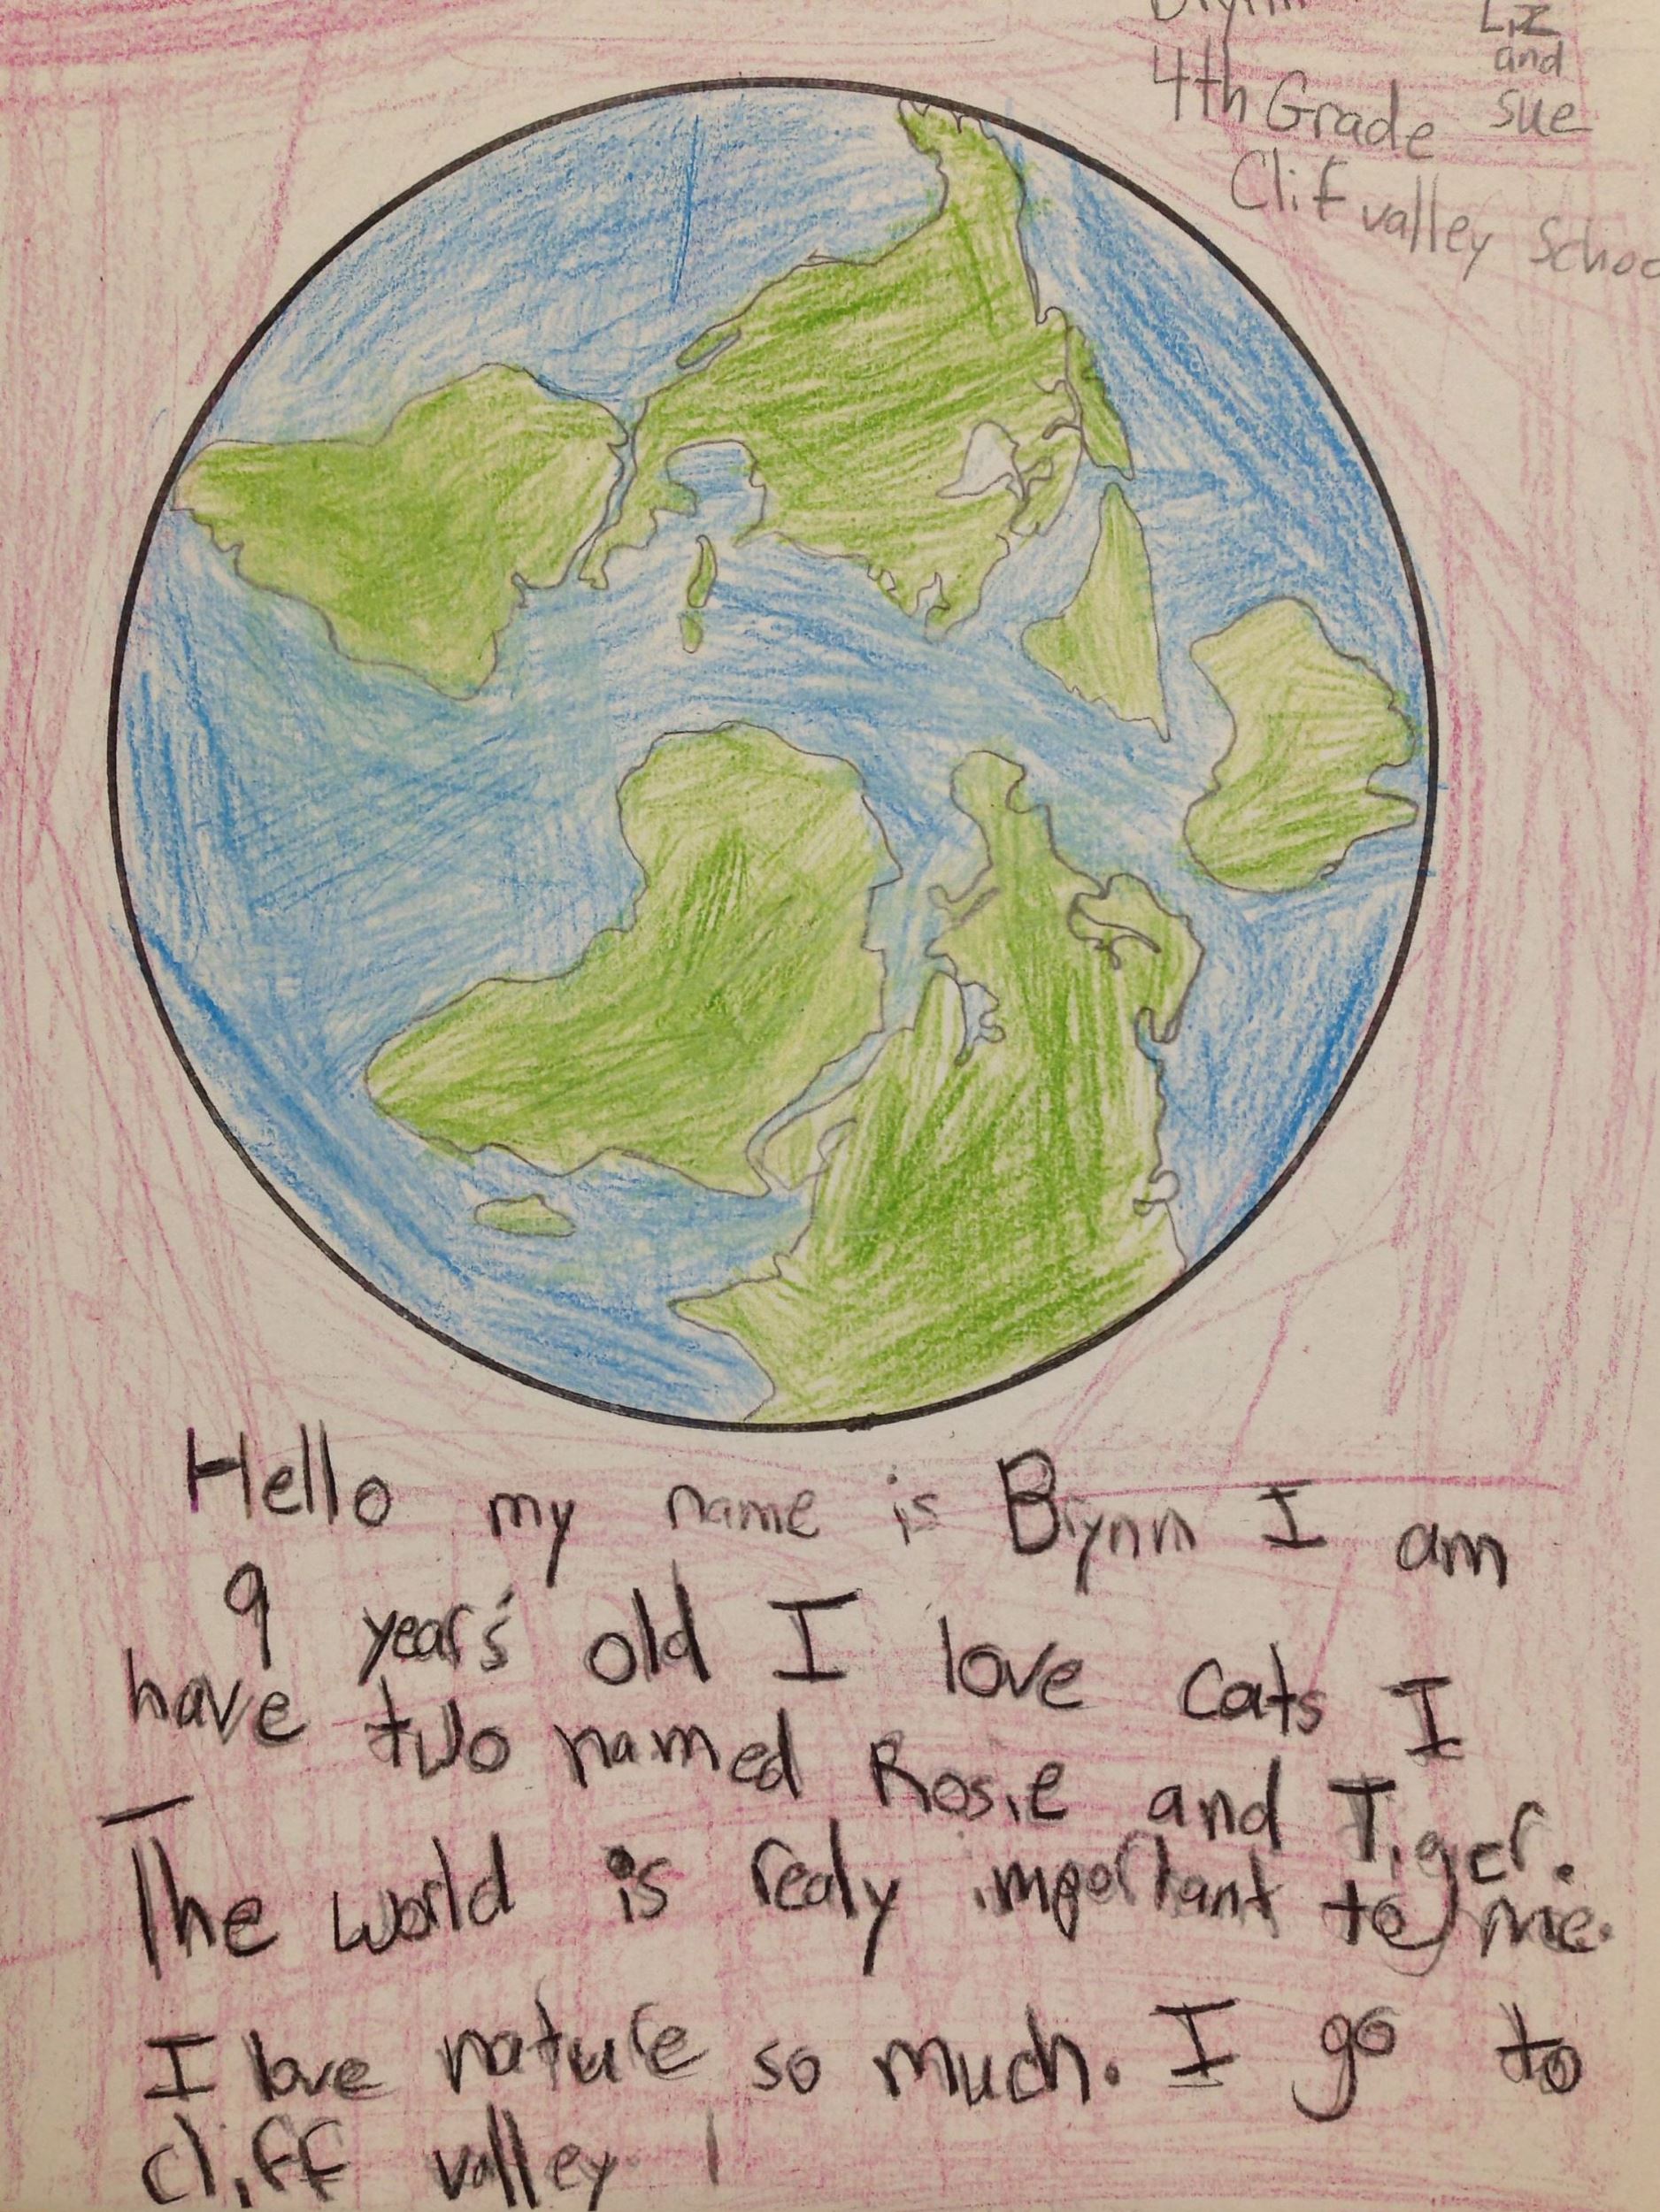 Brynn
Liz
and
4th Grade
Sue
Clif valley School
Hello my name is Brynn I am
9 year's old I love cats I
have two named Rosie and Tiger.
The world is realy important to me.
I love nature so much. I go to
cliff valley